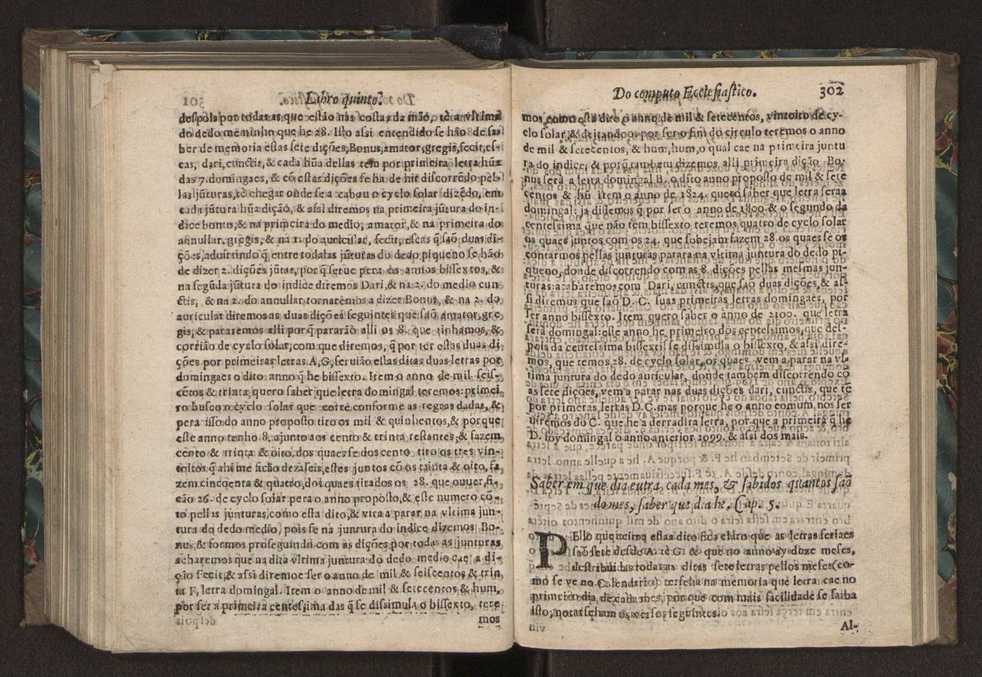 Libro quinto.
despois por todas as que estão nas costas da mão, tè a vltima
do dedo meminho que he 28. Isto assi entendido se hão de sa-
ber de memoria estas sete dições, Bonus, amator, gregis, fecit, es-
cas, dari, cunctis, & cada hũa dellas tem por primeira letra hũa
das 7. domingaes, & cõ estas dições se ha de hir discorrẽdo pel-
las jũturas, tè chegar onde se acabou o cyclo solar dizẽdo, em
cada jũtura hũa dição, & assi diremos na primeira jũtura do in-
dice bonus, & na primeira do medio, amator, & na primeira do
annullar, gregis, & na 1. do auricular, fecit, escas q̃ são duas di-
ções, aduirtindo q̃ entre todalas jũturas do dedo pequeno se hão
de dizer 2. dições jũtas, por q̃ serue pera os annos bissextos, &
na segũda jũtura do indice diremos Dari, & na 2. do medio cun
ctis, & na 2. do annullar tornarèmos a dizer Bonus, & na 2. do
auricular diremos as duas dições seguintes que são amator, gre
gis, & pararemos alli por q̃ pararão alli os 8. que tinhamos, &
corrião de cyclo solar, com que diremos, q̃ por ter estas duas di
ções por primeiras letras A, G, seruião estas ditas duas letras por
domingaes o dito anno q̃ he bissexto. Item o anno de mil seis-
cẽtos & trinta, quero saber que letra domingal teremos: primei
ro busco o cyclo solar que corre conforme as regras dadas, &
pera isso do anno proposto tiro os mil & quinhentos, & porque
este anno tenho 8. ajunto aos cento & trinta restantes, & fazem
cento & trinta & oito, dos quaes se dos cento tiro os tres vin-
toitos q̃ ahi me ficão dezaseis, estes juntos cõ os trinta & oito, fa
zem cincoenta & quatro, do i quaes tirados os 28. que ouuer fi-
cão 26. de cyclo solar pera o anno proposto, & este numero cõ-
to pellas junturas, como esta dito, & vira a parar na vltima jun-
tura do dedo medio, pois se na juntura do indice dizemos Bo-
nus, & formos proseguindo com as dições por todas as junturas
acharemos que na dita vltima juntura do dedo medio cae a di-
ção fecit, & assi diremos ser o anno de mil & seiscentos & trin
ta F, letra domingal. Item o anno de mil & setecentos & hum,
por ser a primeira centessima das q̃ se dissimula o bissexto, tere
mos
Do computo Ecclesiastico. 302
mos como està dito o anno de mil & setecentos, vintoito de cy-
clo solar, & deitando 9. por ser o fim do circulo teremos o anno
de mil & setecentos, & hum, hum, o qual cae na primeira juntu
ra do indice, & porq̃ tambem dizemos alli primeira dição Bo-
nus serà a letra domingal B. o dito anno proposto de mil & sete
centos & hũ Item o anno de 1824. quero saber que letra seraa
domingal: ja dissemos q̃ por ser o anno de 1800. & o segundo da
centessima que não tem bissexto teremos quatro de cyclo solar
os quaes juntos com os 24. que sobejam fazem 28. os quaes se os
contarmos pellas junturas parara na vltima juntura do dedo pi-
queno, donde discorrendo com as 8. dições pellas mesmas jun-
turas acabaremos com Dari, cunctis, que são duas dições, & as-
si diremos que são D. C. suas primeiras letras domingaes, por
ser anno bissexto. Item quero saber o anno de 2100. que letra
serà domingal este anno he primeiro dos centessimos, que des-
pois da centessima bissexti se dissimula o bissexto, & assi tire-
mos, que temos 28. de cyclo solar, os quaes vem a parar na vl
tima juntura do dedo auricular, donde tambem discorrendo cõ
as sete dições, vem a parar nas duas dições dari, cunctis, que tẽ
por primeiras letras D. C. mas porque he o anno comum, nos ser
uiremos do C. que he a derradeira letra, por que a primeira q̃ he
D. foy domingal o anno anterior 2099. & assi dos mais.
Saber em que dia entra cada mes, & sabidos quantos são
do mes, saber que dia he. Cap. 5.
PEllo que acima estaa dito fica claro que as letras feriaes
são sete desde A. tè G: & que no anno ay doze meses,
destribuidas todas as ditas sete letras pellos meses (co-
mo se ve no Calendario) terseha na memoria que letra cae no
primeiro dia de cada mes, por que com mais facilidade se saiba
isto, notarseham os versos seguintes.
Al-